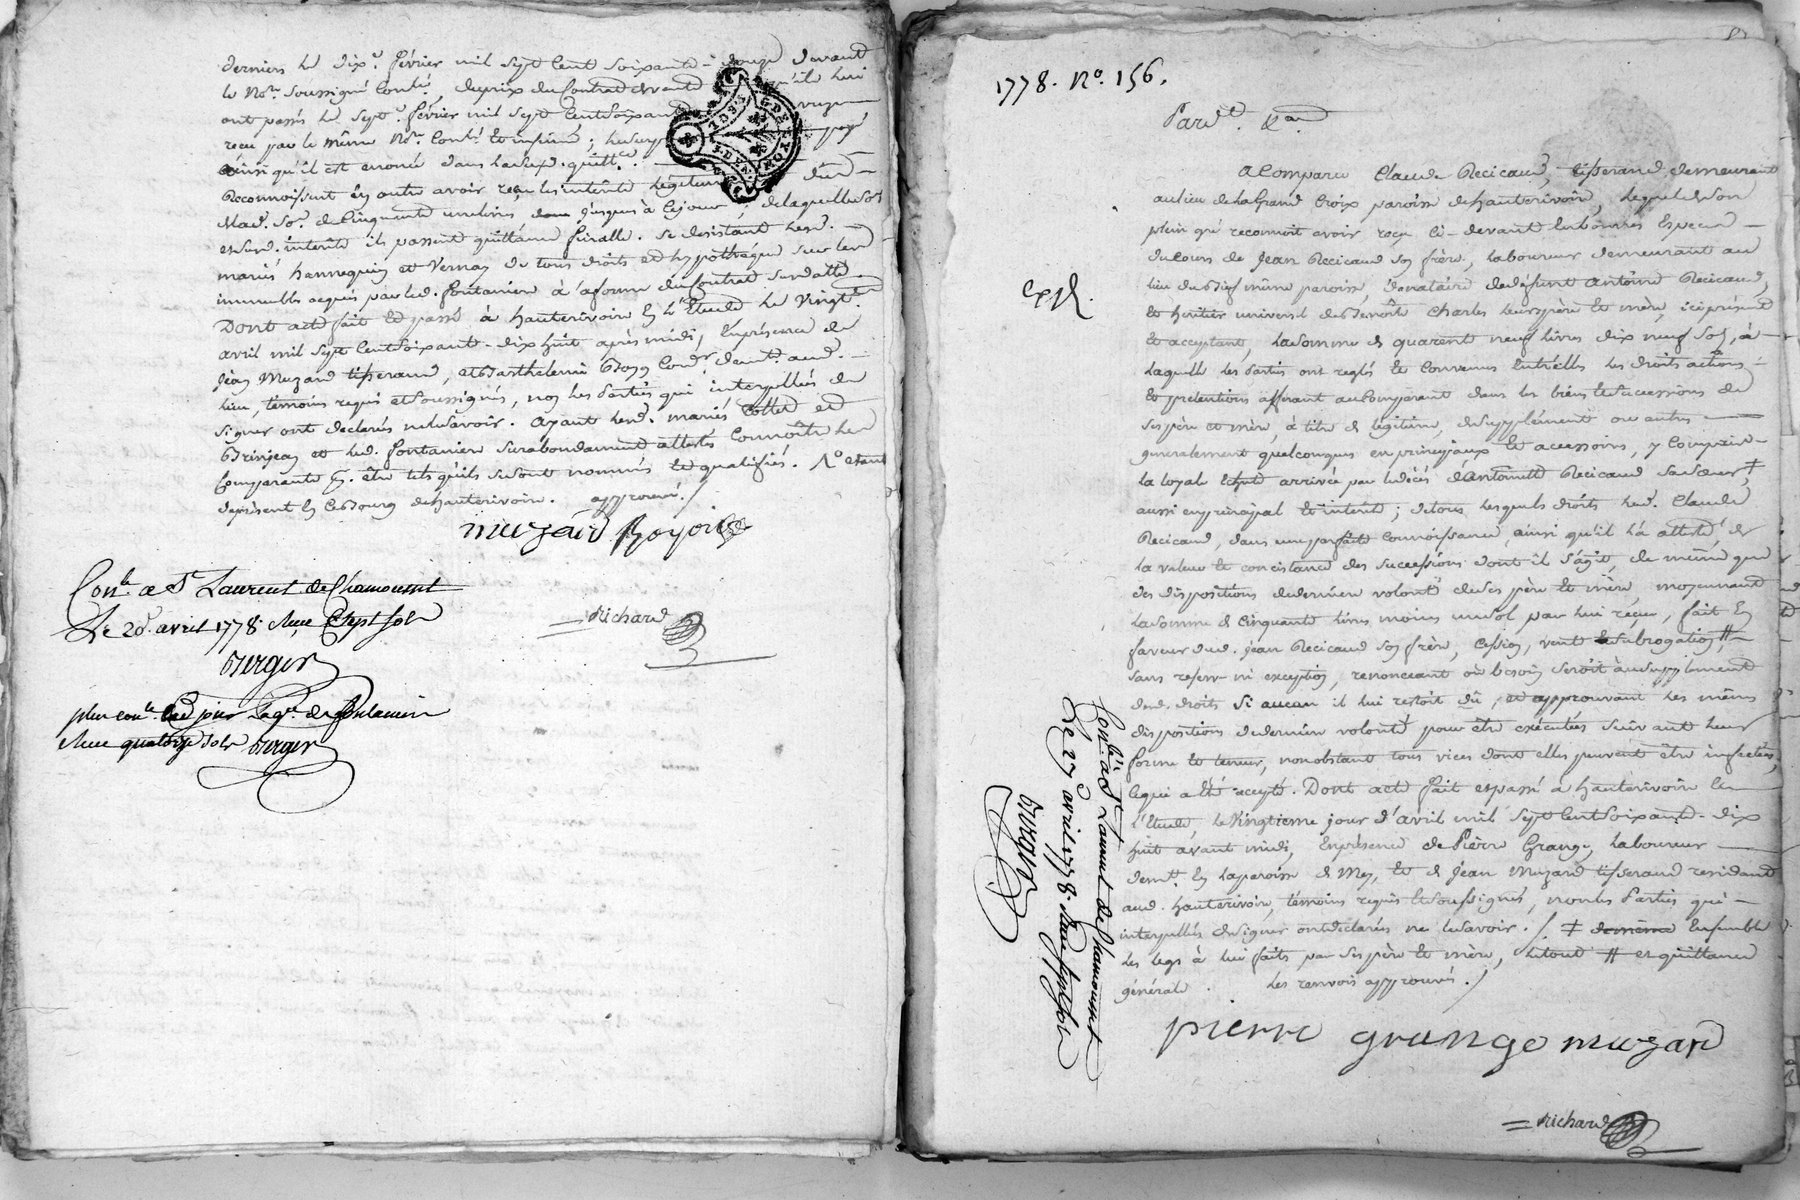 derniers le dix.e février mil sept cent soixante-douze devant
le No.re soussigné Conlé, du prix du Contrat de vente qu'il lui
ont passés le sept.e février mil sept cent soixante
reçu par le même No.re Conlé et insinué; lesd.
ainsi qu'il est énoncé dans lad. quitt.ce
Reconnoissent en outre avoir reçu les intérêts légitimes d'une
somme de Cinquante une livres jusques à ce jour; de laquelle
et sesd. intérêts ils passent quittance finalle. Se desistant lesd.
mariés hannequin et Vernay de tous droits et hypothéque sur les
immeubles acquis par led. fontanier à la forme du Contrat susdatté
Dont acte fait et passé à hauterivoire en l'Etude le Vingt.
avril mil sept cent soixante-dix huit après midi, En présence de
Jean Muzard tisserand, et Barthelemi demt. aud.
lieu, témoins requis et soussignés, non les parties qui interpellées de
signer ont declarés ne le savoir. ayant lesd. mariés et
Brinjean et led. fontanier surabondamment attestés Connoitre les
Comparants p.r être tels qu'ils se sont nommés et qualifiés. étant
de présent en ce Bourg de hauterivoire. approuvé./
muzard
Richard
Con.lé a St Laurent de Chamousset
Le 20 avril 1778. Reçu Sept sols
Berger
plus con.lé led jour
Reçu quatorze sols Berger
1778. No. 156.
Pard.t &.a
A Comparu Claude Recicaud, tisserand demeurant
au lieu de la Grand Croix paroisse de hauterivoire, lequel de son
plein gré reconnoit avoir reçu ci-devant en bonnes Especes
du cours de Jean Recicaud son frère, Laboureur demeurant au
lieu du même paroisse, donataire de defunt antoine Recicaud,
et heritier universel de Benoite Charles leurs père et mère, ici présent
et acceptant, la somme de quarente neuf livres dix neuf sols, à
laquelle les parties ont reglés et Convenus Entr'elles les droits actions
et prétentions afférant au Comparant dans les biens et successions de
ses père et mère, à titre de légitime, de supplément ou autres
generalement quelconques en principaux et accessoirs, y Compris
la loyale échute arrivée par le décès d'antoinette Recicaud sa sœur, ‡
aussi en principal et intérêts; de tous lesquels droits led. Claude
Recicaud, dans une parfaite connoissance, ainsi qu'il l'a attesté, de
la valeur et consistance des successions dont il s'agit, de même que
des dispositions de dernière volonté de ses père et mère, moyennant
la somme de Cinquante livres moins un sol par lui reçue, fait en
faveur dud. Jean Recicaud son frère, Cession, vente et subrogation, #
sans reserve ni exception, renonceant où besoin seroit à un supplément
desd. droits Si aucun il lui restoit dû, et approuvant les mêmes
dispositions de dernière volonté pour être exécutées suivant leur
forme et teneur, nonobstant tous vices dont elles peuvent être infectées,
ce qui a été accepté. Dont acte fait et passé à hauterivoire en
l'Etude, le Vingtieme jour d'avril mil sept cent soixante-dix
huit avant midi, En présence de Pierre Grange, Laboureur
demt. en la paroisse de Mey, et de Jean Muzard tisserand residant
aud. hauterivoire, témoins requis et soussignés, non les parties qui
interpellées de signer ont declarés ne le savoir./. ‡ de même Ensemble
les legs à lui faits par ses père et mère, le tout # et quittance
générale. les renvois approuvés./
pierre grange muzard
Richard
Con.lé a St Laurent de Chamousset
Le 27 avril 1778. Reçu Sept sols
Berger